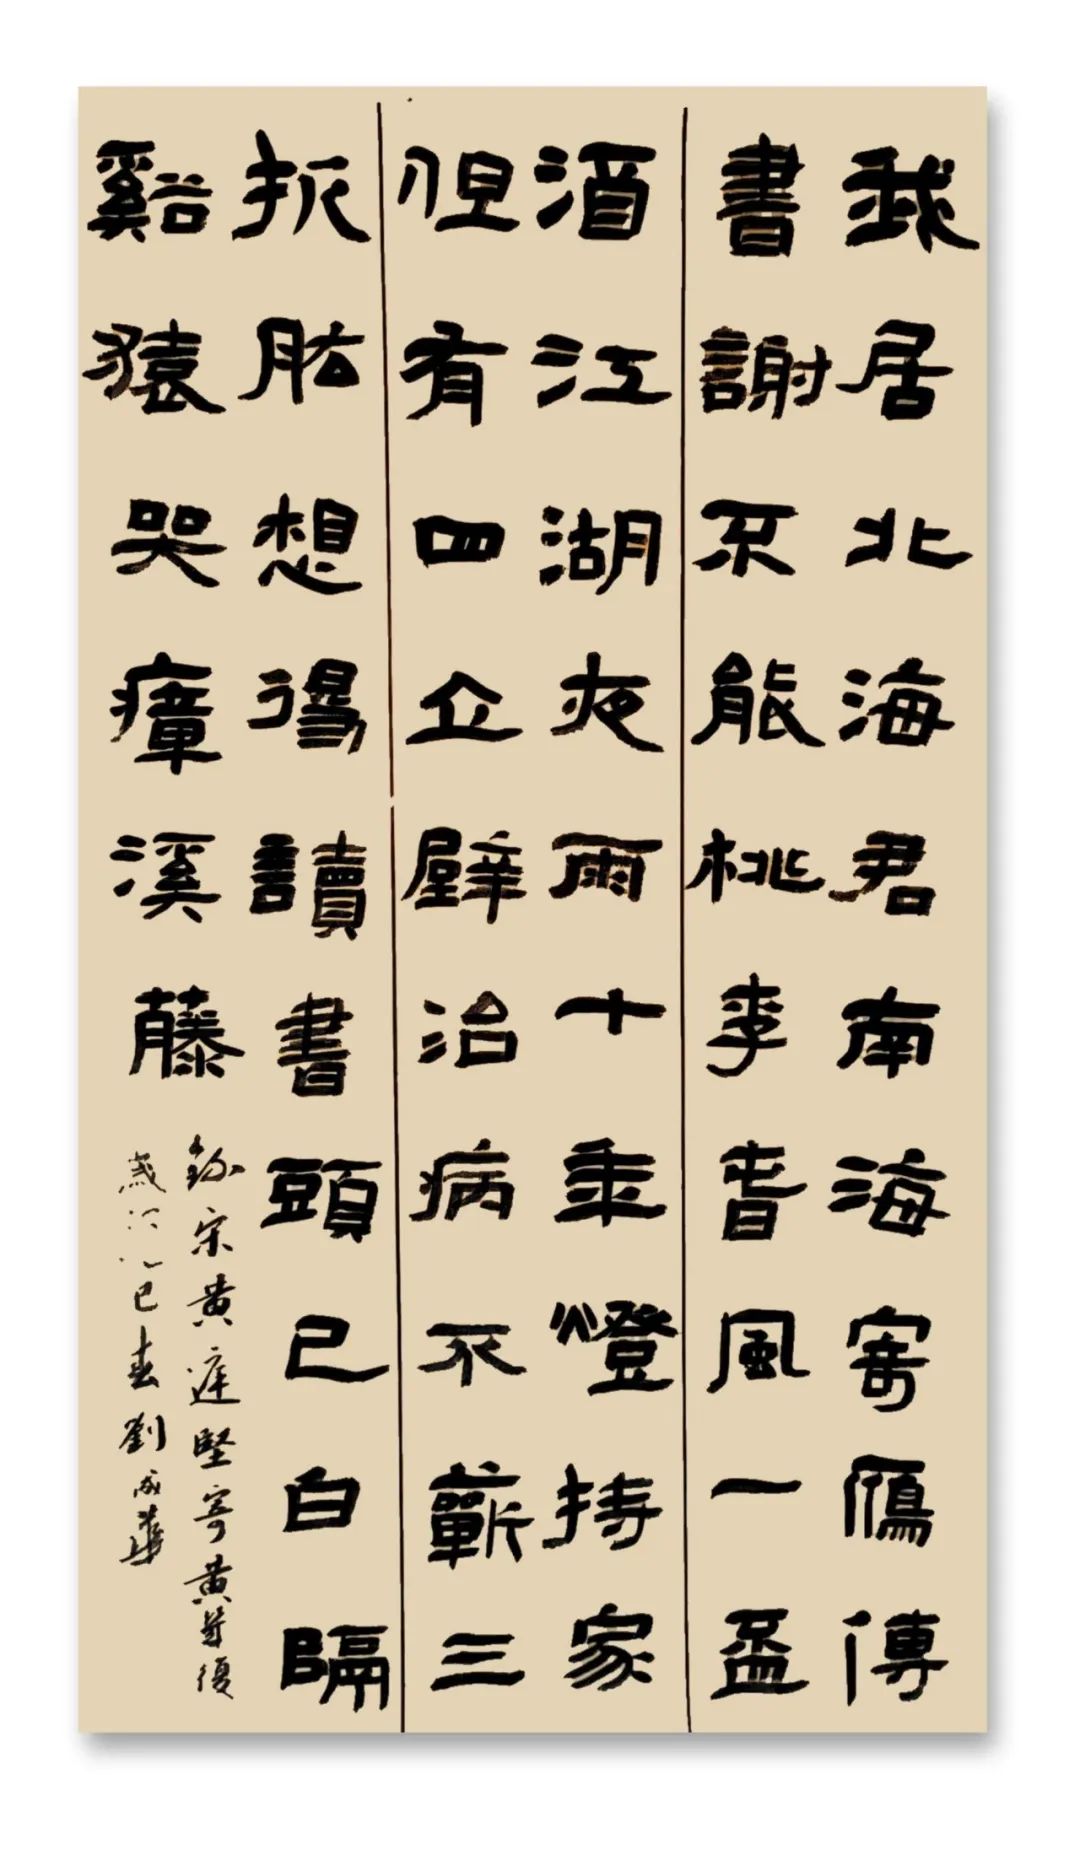 我居北海君南海寄鴈傳
書謝不能桃李春風一盃
酒江湖夜雨十年燈持家
但有四立壁治病不蘄三
折肱想得讀書頭已白隔
谿猿哭瘴溪藤
錄宋黃庭堅寄黃幾復
歲 巳春劉成